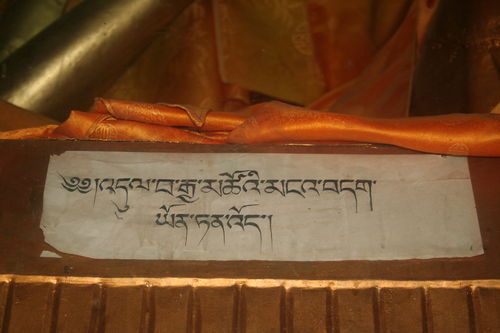 ༄༅། །འདུལ་བ་རྒྱ་མཚོའི་མངའ་བདག་
ཡོན་ཏན་འོད།